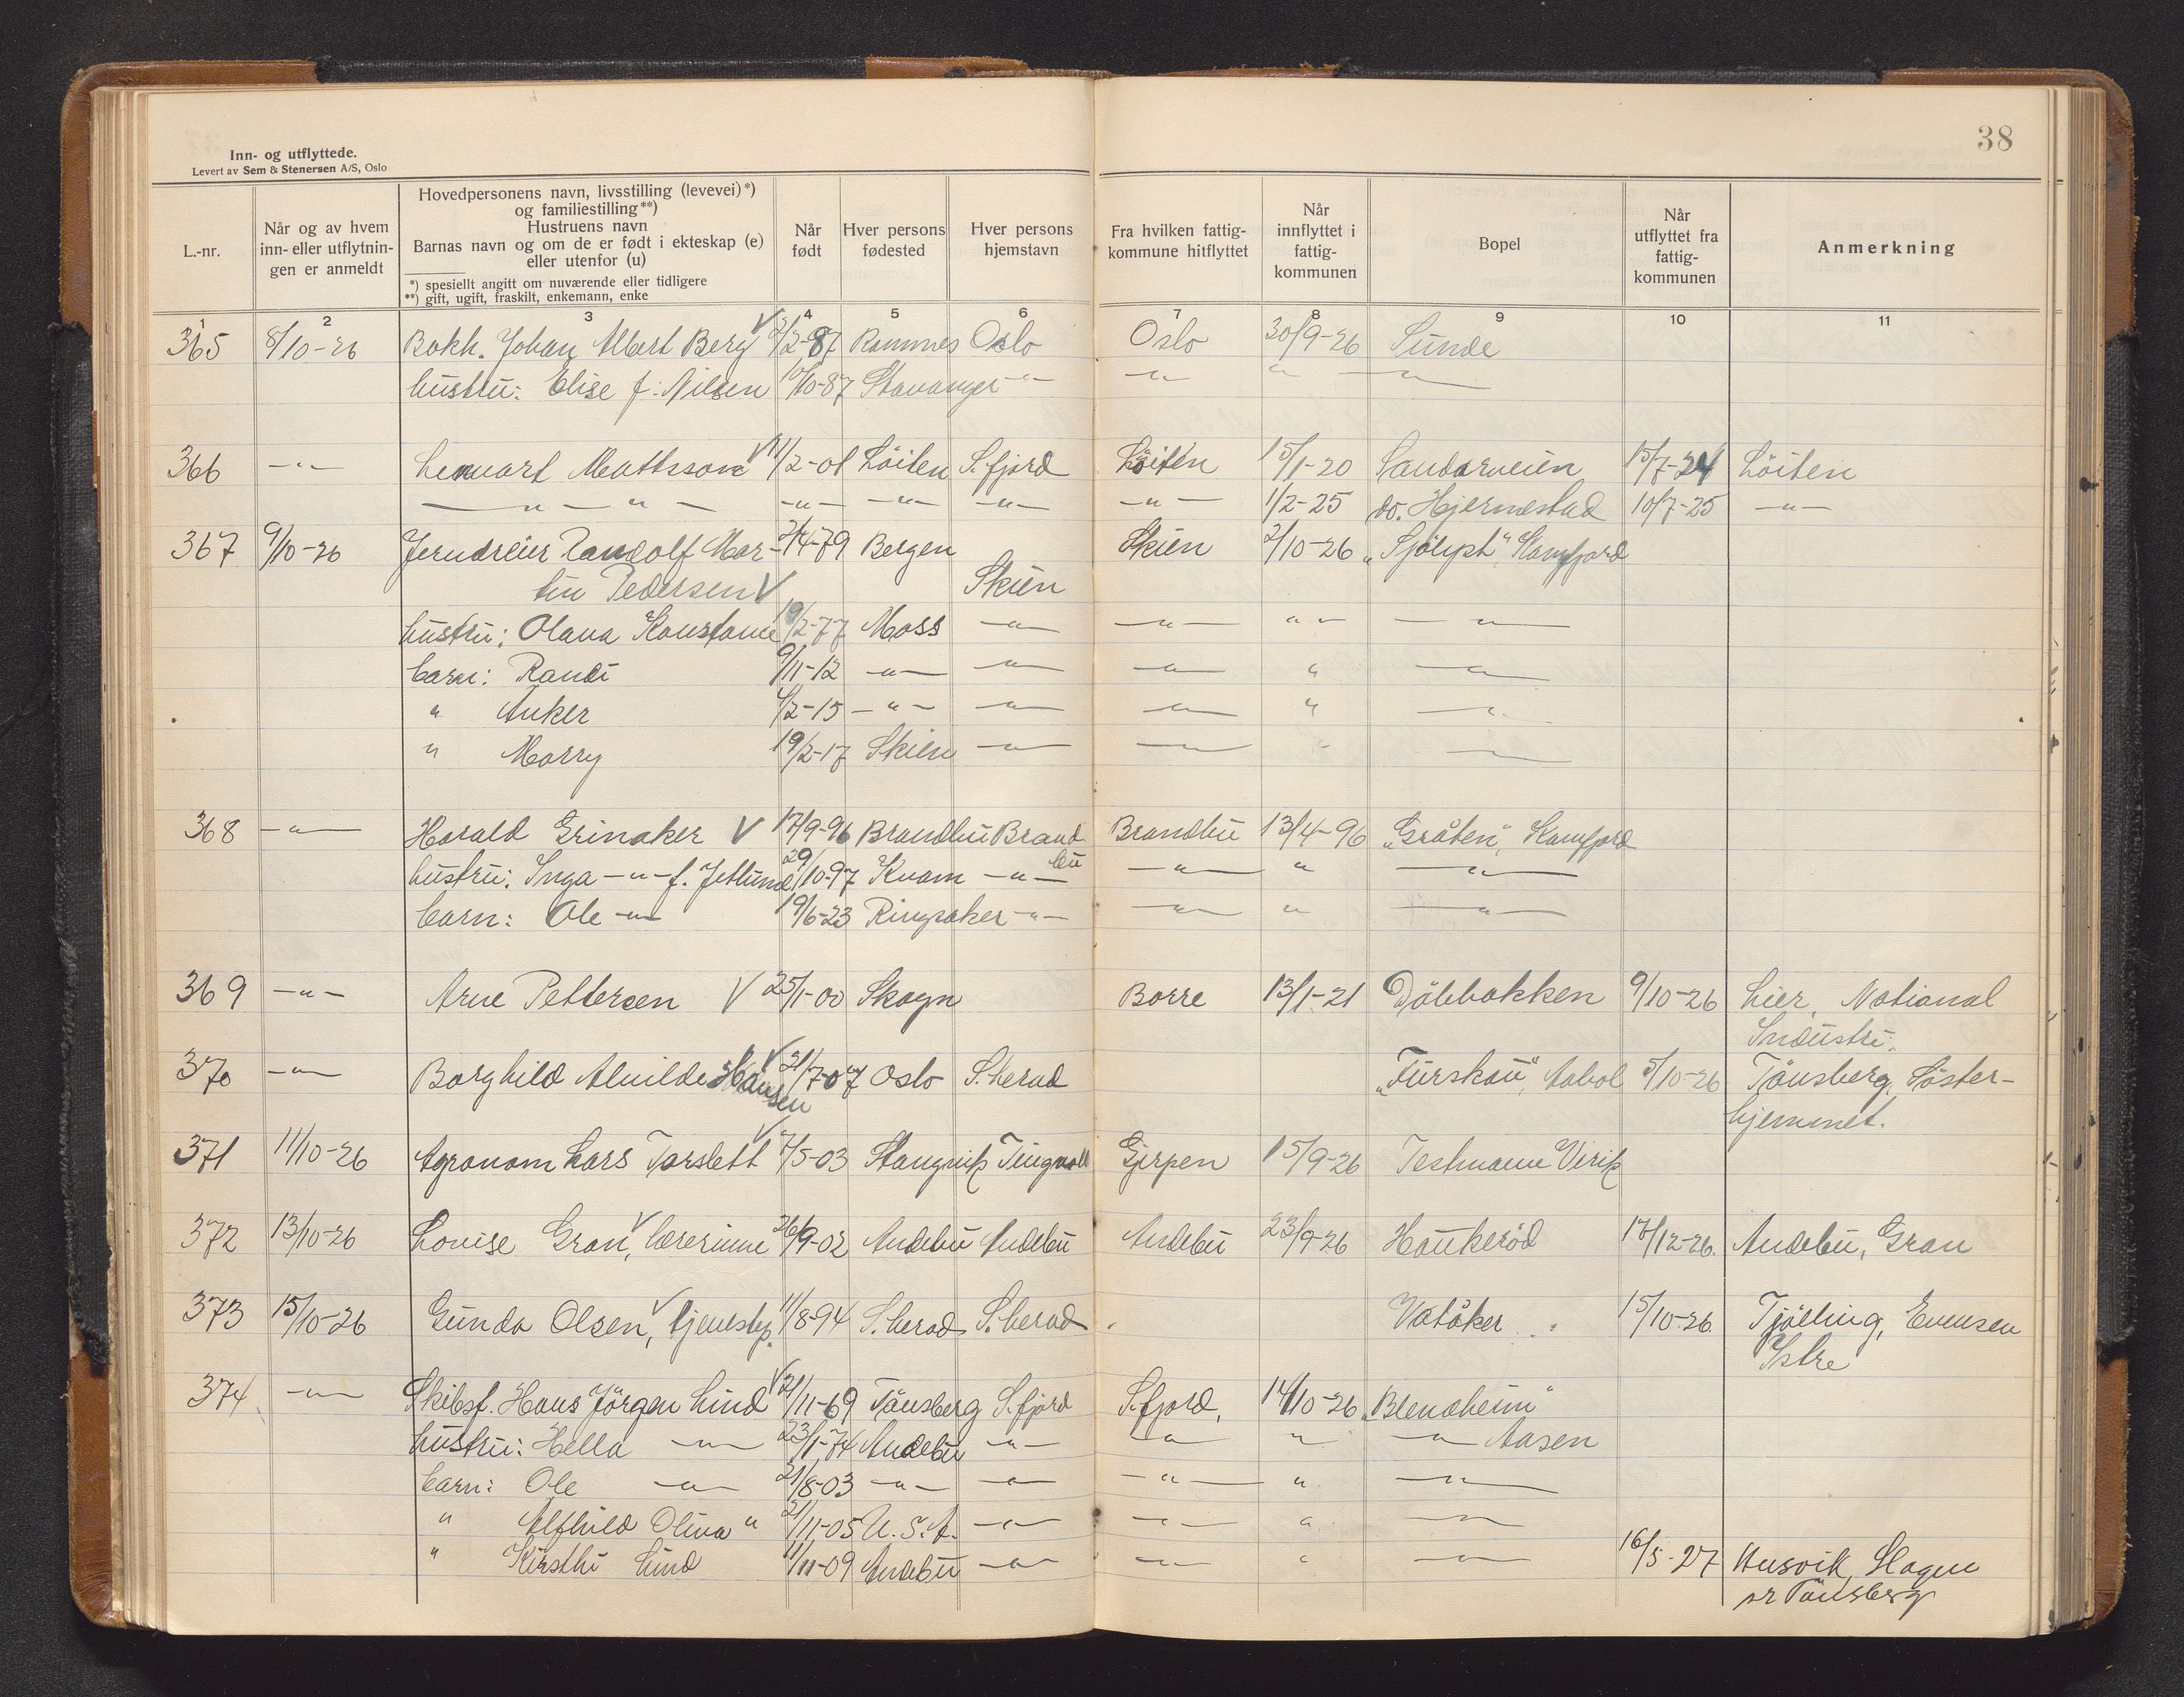 38
Inn- og utflyttede.
Levert av Sem & Stenersen A/S, Oslo
L.-nr.
Når og av hvem inn- eller utflytnin- gen er anmeldt
Hovedpersonens navn, livsstilling (levevei)*)
og familiestilling**)
Hustruens navn
Barnas navn og om de er født i ekteskap (e)
eller utenfor (u)
*) spesiellt angitt om nuværende eller tidligere
**) gift, ugift, fraskilt, enkemann, enke
Når født
Hver persons fødested
Hver persons hjemstavn
Fra hvilken fattig- kommune hitflyttet
Når innflyttet i fattig- kommunen
Bopel
Når utflyttet fra fattig- kommunen
Anmerkning
1 2 3 4 5 6 7 8 9 10 11
365 8/10-26 Bokh. Johan Albert Berg V 2/2-87 Ramnes Oslo Oslo 30/9-26 Sunde
hustru: Elise f. Nilsen 10/10-87 Stavanger -"- -"- " -"-
366 -"- Lennart Mattsson V 11/2-01 Löiten S.fjord Löiten 15/1-20 Sandarveien 15/7-24 Löiten
-"- -"- -"- -"- -"- -"- 1/2-25 do. Hjermestad 10/7-25 -"-
367 9/10-26 Jerndreier Randolf Mar- 2/4-79 Bergen Skien 2/10-26 "Sjölyst" Kamfjord
tin Pedersen V Skien
hustru: Olava Konstanse 19/2-77 Moss -"- -"- "- -"-
barn: Randi 9/11-12 -"- -"- -"- " -"-
" Anker 4/2-15 -"- -"- -"- " -"-
" Marry 19/2-17 Skien -"- -"- " -"-
368 -"- Harald Grinaker V 17/9-96 Brandbu Brand- Brandbu 13/4-96 "Gråten", Kamfjord
bu
hustru: Inga -"- f. Jetlund 29/10-97 Kvam -"- -"- " -"-
barn: Ole -"- 19/6-23 Ringsaker -"- -"- " -"-
369 -"- Arne Pettersen V 25/1-00 Skogn Borre 13/1-21 Döbbakken 9/10-26 Lier, National
Industri.
370 -"- Borghild Alvilde Hansen V 21/7-07 Oslo S.herad "Furskau", Aabol 5/10-26 Tönsberg, Söster-
hjemmet.
371 11/10-26 Agronom Lars Torslett V 7/5-03 Stangvik Tingvoll Gjerpen 15/9-26 Testmann Virik
372 13/10-26 Lovise Gran V, lærerinne 26/9-02 Andebu Andebu Andebu 23/9-26 Haukeröd 17/12-26. Andebu, Gran
373 15/10-26 Gunda Olsen V, tjenestep. 11/8-94 S.herad S.herad Vatåker 15/10-26. Tjölling, Evensen
Istre
374 -"- Skibsf. Hans Jörgen Lind V 21/11-69 Tönsberg S.fjord S.fjord, 14/10-26 "Blendheim"
hustru: Hella -"- 23/1-74 Andebu -"- -"- " -"- Aasen
barn: Ole -"- 21/8-03 -"- -"- -"- " -"-
" Alfhild Oliva " 21/11-05 U.S.A. -"- -"- " -"-
" Kirsthi Lind 11/11-09 Andebu -"- -"- " -"- 16/5-27 Husvik, Slagen
pr Tönsberg